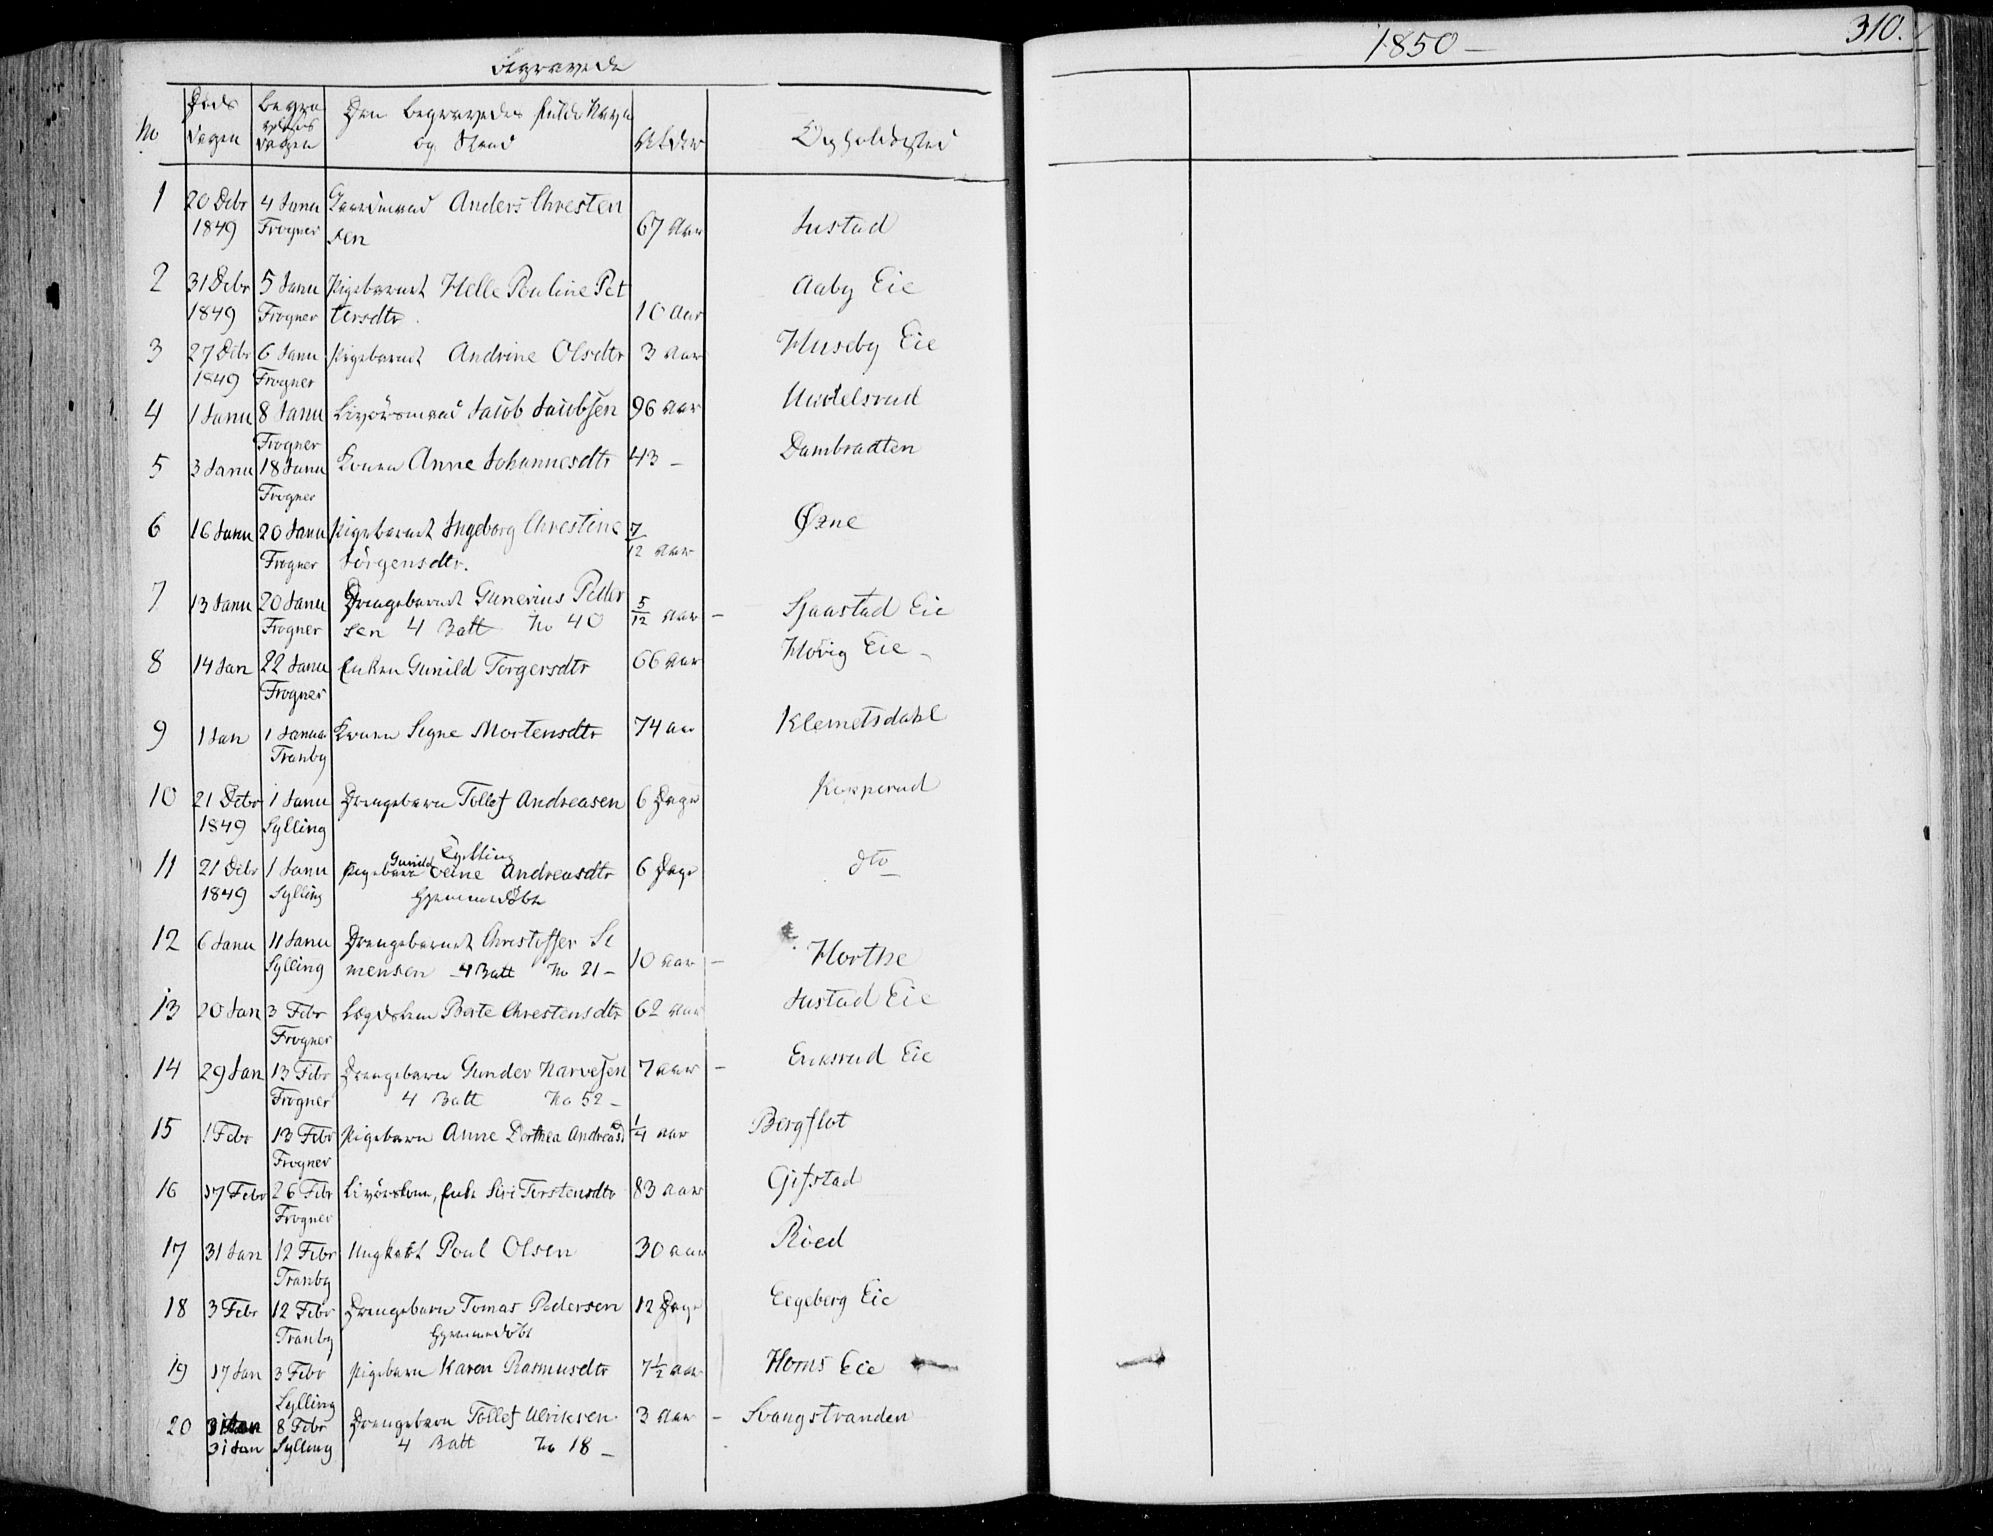 Begravede
1850 —
310.
No
Døds Dagen
Begravelses Dagen
Den Begravedes fulde Navn og Stand
Alder
Opholdssted
1 20 Debr 4 Janu Gaardmand Anders Chresten
1849 Frogner sen 67 Aar Justad
2 31 Debr 5 Janu Pigebarnet Helle Pouline Pet Aaby Eie
1849 Frogner tersdtr. 10 Aar
3 27 Debr 6 Janu Pigebarnet Andrine Olsdtr 3 Aar Huseby Eie
1849 Frogner
4 1 Janu 8 Janu Livörsmand Jacob Jacobsen 96 Aar
Frogner
5 3 Janu 18 Janu Konen Anne Johannesdtr 43 – Dambraaten
Frogner
6 16 Janu 20 Janu Pigebarnet Ingeborg Chrestine 7/12 Aar Øxne
Frogner Jörgensdtr.
7 13 Janu 20 Janu Drengebarnet Gunerius Peder 5/12 Aar – Sjaastad Eie
Frogner sen 4 Batt No 40
8 14 Jan 22 Janu Enken Gunild Torgersdtr 66 Aar Hovig Eie –
Frogner
9 1 Jan 1 Janua Konen Signe Mortensdtr 74 Aar Klemetsdahl
Tranby
10 21 Debr 1 Janu Drengebarn Tollef Andreasen 6 Dage Kopperud
1849 Sylling
Gunild
11 21 Debr 1 Janu Pigebarn Andreasdtr 6 Dage dto
1849 Sylling Hjemmedöbt
12 6 Janu 11 Janu Drengebarnet Christoffer Si
Sylling mensen – 4 Batt No 21 – 10 Aar – Horthe
13 20 Jan 3 Febr Lægdslem Berte Chrestensdtr 62 Aar Justad Eie
Frogner
14 29 Jan 13 Febr Drengebarn Gunder Narvesen 7 Aar – Eriksrud Eie
Frogner 4 Batt No 52 –
15 1 Febr 13 Febr Pigebarn Anne Dorthea Andreasd 1/4 Aar Bergflot
Frogner
16 17 Febr 26 Febr Livörskone, Enke Siri Torstensdtr 83 Aar Gifstad
Frogner
17 31 Jan 12 Febr Ungkarl Poul Olsen 30 Aar Röed
Tranby
18 3 Febr 12 Febr Drengebarn Tomas Pedersen 12 Dage Eegeberg Eie
Tranby Hjemmedöbt
19 17 Jan 3 Febr Pigebarn Karen Rasmusdtr 7 1/2 Aar Horns Eie
Sylling
20 31 Jan 8 Febr Drengebarn Tollef Ulriksen 3 Aar – Svangstranden
31 Jan Sylling 4 Batt No 18 –